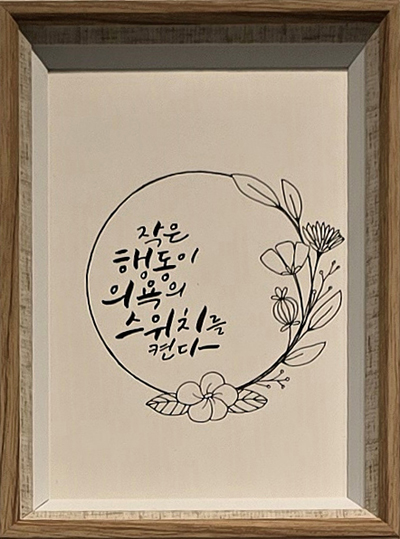 작은
행동이
의욕의
스위치를
켠다